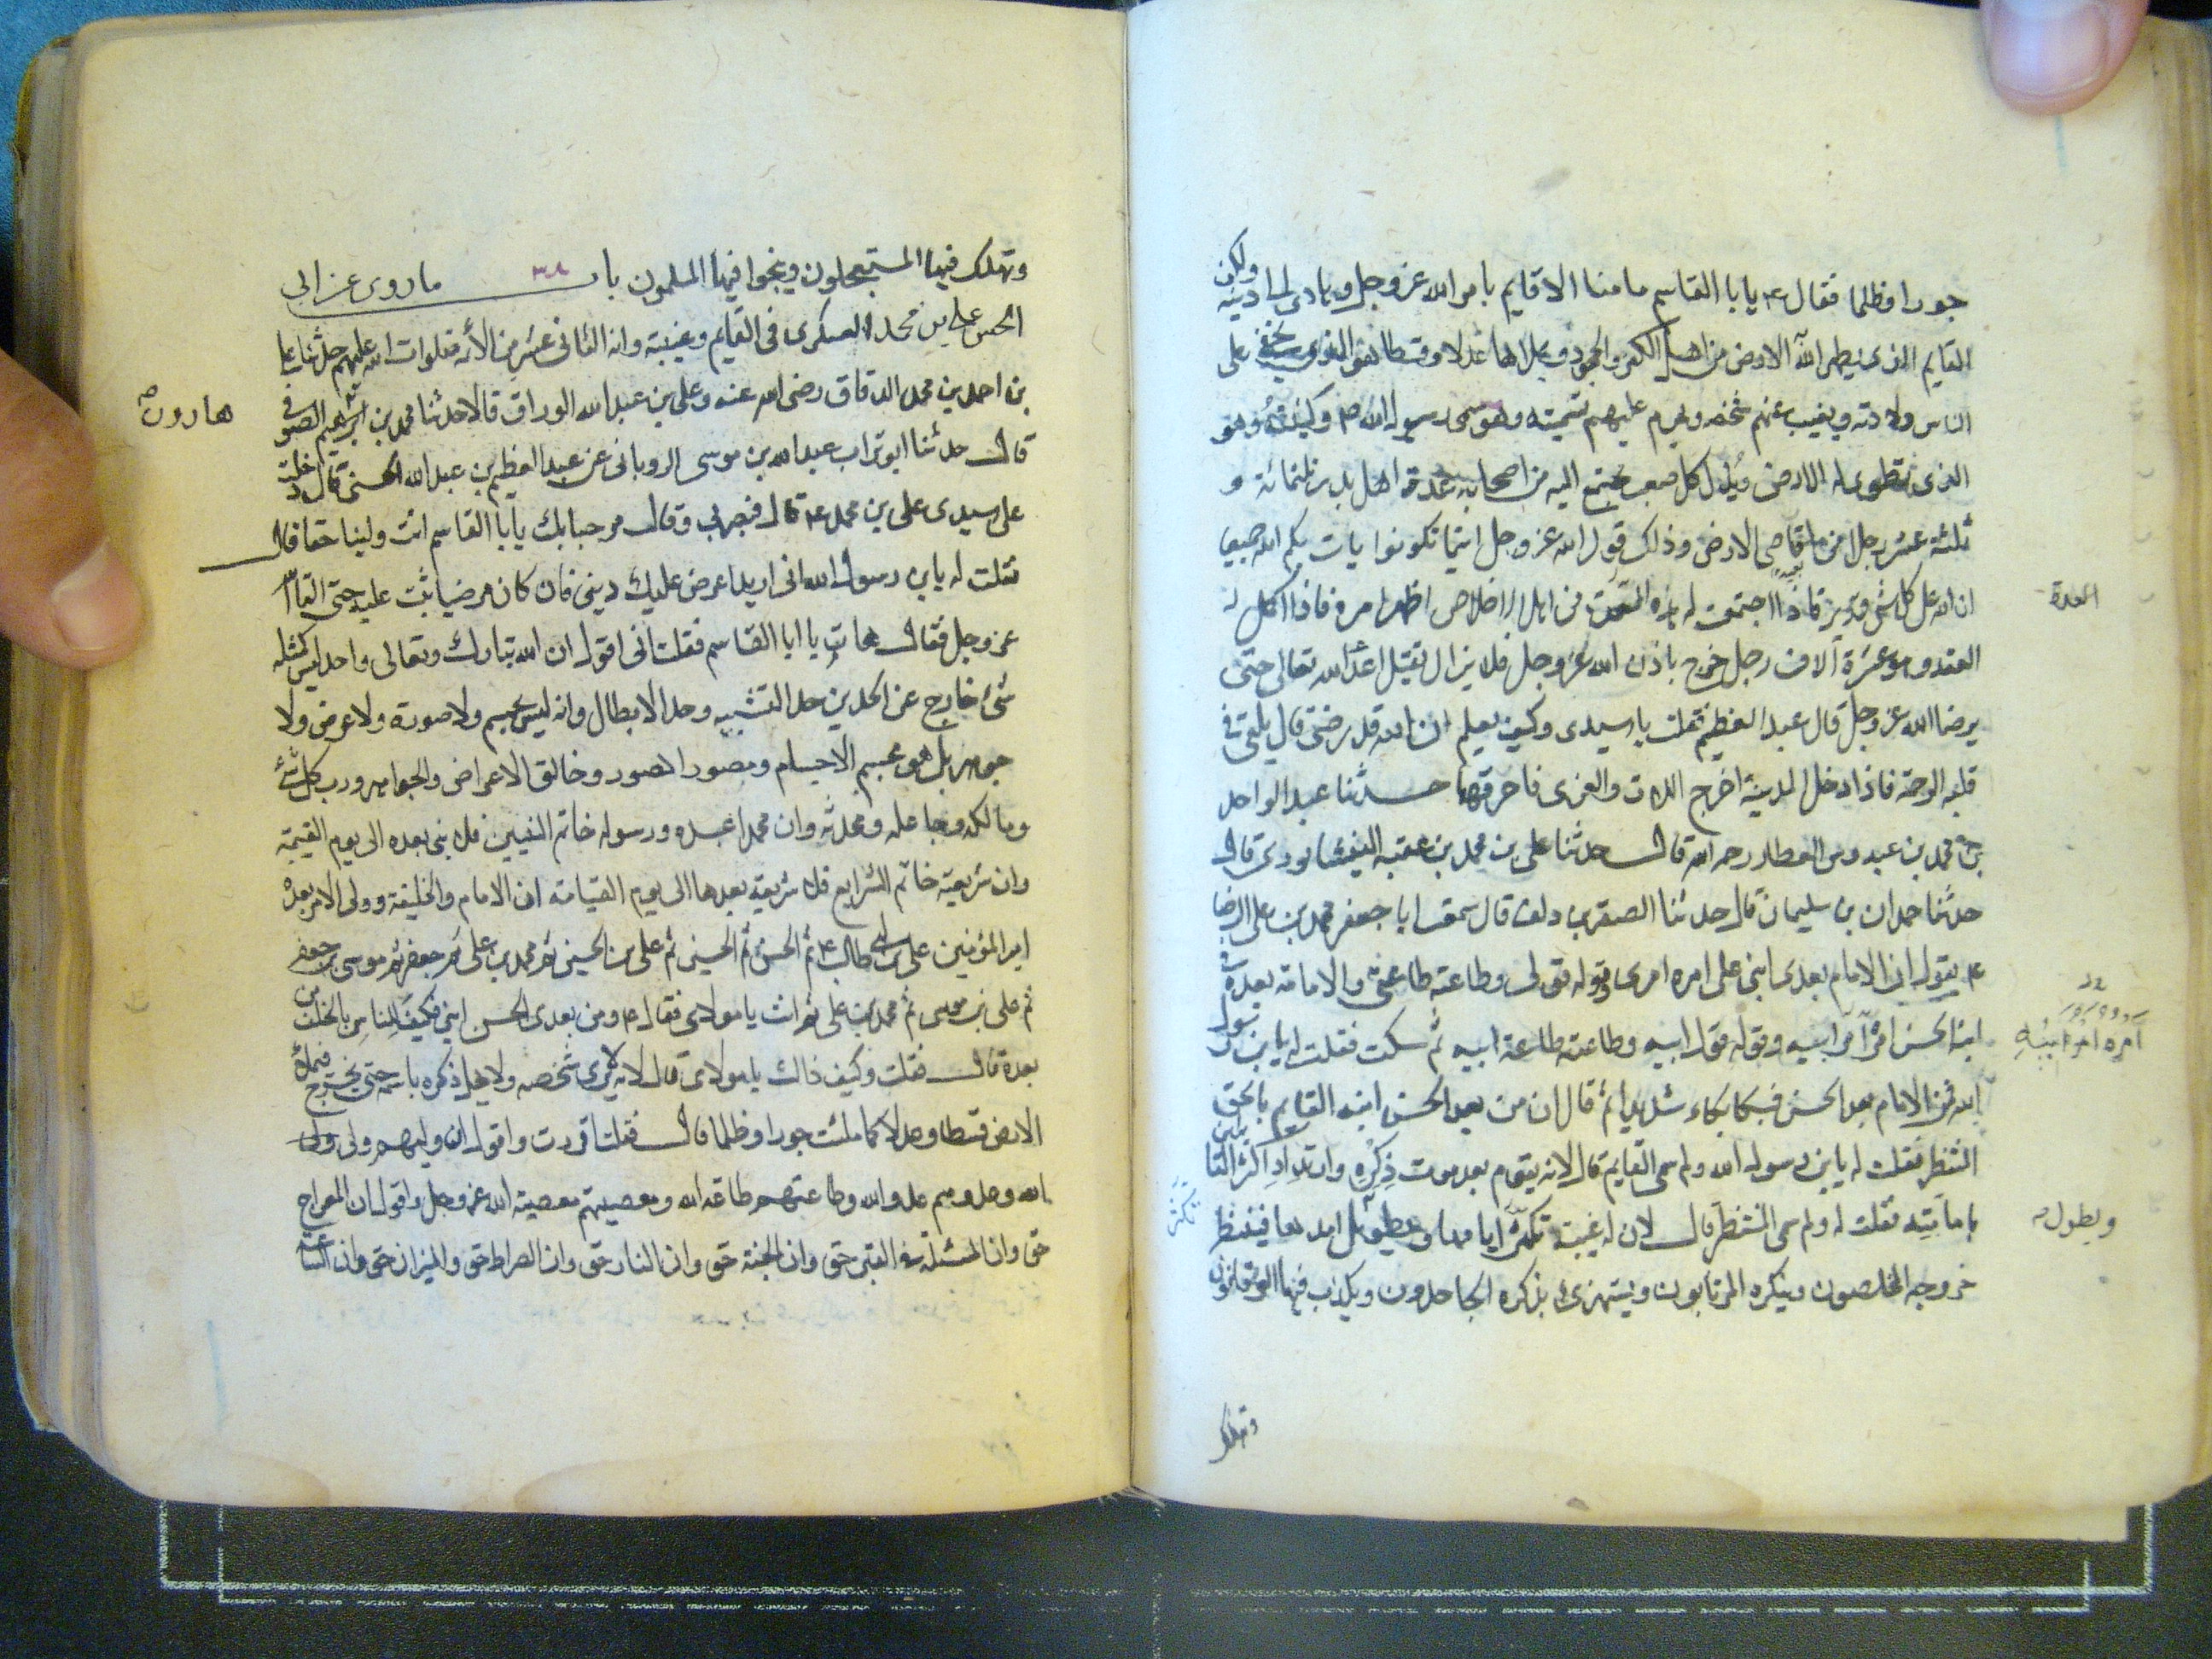 جورا وظلما فقال ع يا با القاسم ما منا الا قايم بامر الله عز وجل وهادى الى دينه ولكن
القايم الذى يطهر الله الارض من اهل الكفر والجحود ويملاها عدلا وقسطا هو الذى يخفى على
الناس ولادته ويغيب عنهم شخصه ويحرم عليهم تسميته وهو سمى رسول الله ص وكنيه وهو
الذى تطوى له الارض ويذل له كل صعب يجتمع اليه من اصحابه عدة اهل بدر ثلثمائة و
ثلثة عشر رجلا من اقاصى الارض وذلك قول الله عز وجل اينما تكونوا يات بكم الله جميعا
ان الله على كل شئ قدير فاذا اجتمعت له هذه العدة من اهل الاخلاص اظهر امره فاذا اكمل له
العدة
العقد وهو عشرة آلاف رجل خرج باذن الله عز وجل فلا يزال يقتل اعداء الله تعالى حتى
يرضا الله عز وجل قال عبد العظيم فقلت يا سيدى وكيف يعلم ان الله قد رضى قال يلقى فى
قلبه الرحمة فاذا دخل المدينة اخرج اللات والعزى فاحرقهما حدثنا عبد الواحد
بن محمد بن عبدوس العطار رحمه الله قال حدثنا على بن محمد بن قتيبه النيشابورى قال
حدثنا حمدان بن سليمان قال حدثنا الصقر بن دلف قال سمعت ابا جعفر محمد بن على الرضا
ع يقول ان الامام بعدى ابنى على امره امرى وقوله قولى وطاعته طاعتى والامامة بعده فى
ابنه الحسن امره امر ابيه وقوله قول ابيه وطاعته طاعة ابيه ثم سكت فقلت له يا بن رسول
امره امر ابيه
الله فمن الامام بعد الحسن فبكا بكاء شديدا ثم قال ان من بعد الحسن ابنه القايم بالحق
المنتظر فقلت له يا بن رسول الله ولم سمى القايم قال لانه يقوم بعد موت ذكره وارتداد اكثر القايلين
بامامته فقلت له ولم سمى المنتظر قال لان له غيبة تكثر ايامها ويطول امدها فينتظر
ويطول
تكثر
خروجه المخلصون وينكره المرتابون ويستهزئ بذكره الجاحدون ويكذب فيها الوقاتون
وتهلك
وتهلك فيها المستعجلون وينجوا فيها المسلمون باب ٣٨ ما روى عن ابى
الحسن على بن محمد العسكرى فى القايم وغيبته وانه الثانى عشر من الائمة صلوات الله عليهم حدثنا على
بن احمد بن محمد الدقاق رضى الله عنه وعلى بن عبد الله الوراق قالا حدثنا محمد بن ابرهيم الصوفى
هارون
قال حدثنا ابو تراب عبد الله بن موسى الرويانى عن عبد العظيم بن عبد الله الحسنى قال دخلت
على سيدى على بن محمد ع قال فبصر بى وقال مرحبا بك يا با القاسم انت ولينا حقا قال
فقلت له يا بن رسول الله انى اريد اعرض عليك دينى فان كان مرضيا ثبت عليه حتى القا الله
عز وجل فقال هات يا ابا القاسم فقلت انى اقول ان الله تبارك وتعالى واحد ليس كمثله
شئ خارج عن الحدين حد التشبيه وحد الابطال وانه ليس بجسم ولا صورة ولا عرض ولا
جوهر بل هو مجسم الاجسام ومصور الصور وخالق الاعراض والجواهر ورب كل شئ
ومالكه وجاعله ومحدثه وان محمدا عبده ورسوله خاتم النبيين فلا نبى بعده الى يوم القيمة
وان شريعته خاتم الشرايع فلا شريعة بعدها الى يوم القيامة ان الامام والخليفة وولى الامر بعده
امير المؤمنين على بن ابى طالب ع ثم الحسن ثم الحسين ثم على بن الحسين ثم محمد بن على ثم جعفر ثم موسى بن جعفر
ثم على بن موسى ثم محمد بن على ثم انت يا مولاى فقال ع ومن بعدى الحسن ابنى فكيف للناس بالخلف من
بعده قال فقلت وكيف ذاك يا مولاى قال لانه لا يرى شخصه ولا يحل ذكره باسمه حتى يخرج فيملا
الارض قسطا وعدلا كما ملئت جورا وظلما قال فقلت اقررت واقول ان وليهم ولى
الله وعدوهم عدو الله وطاعتهم طاعة الله ومعصيتهم معصية الله عز وجل واقول ان المعراج
حق وان المسئلة فى القبر حق وان الجنة حق وان النار حق وان الصراط حق والميزان حق وان الساعة